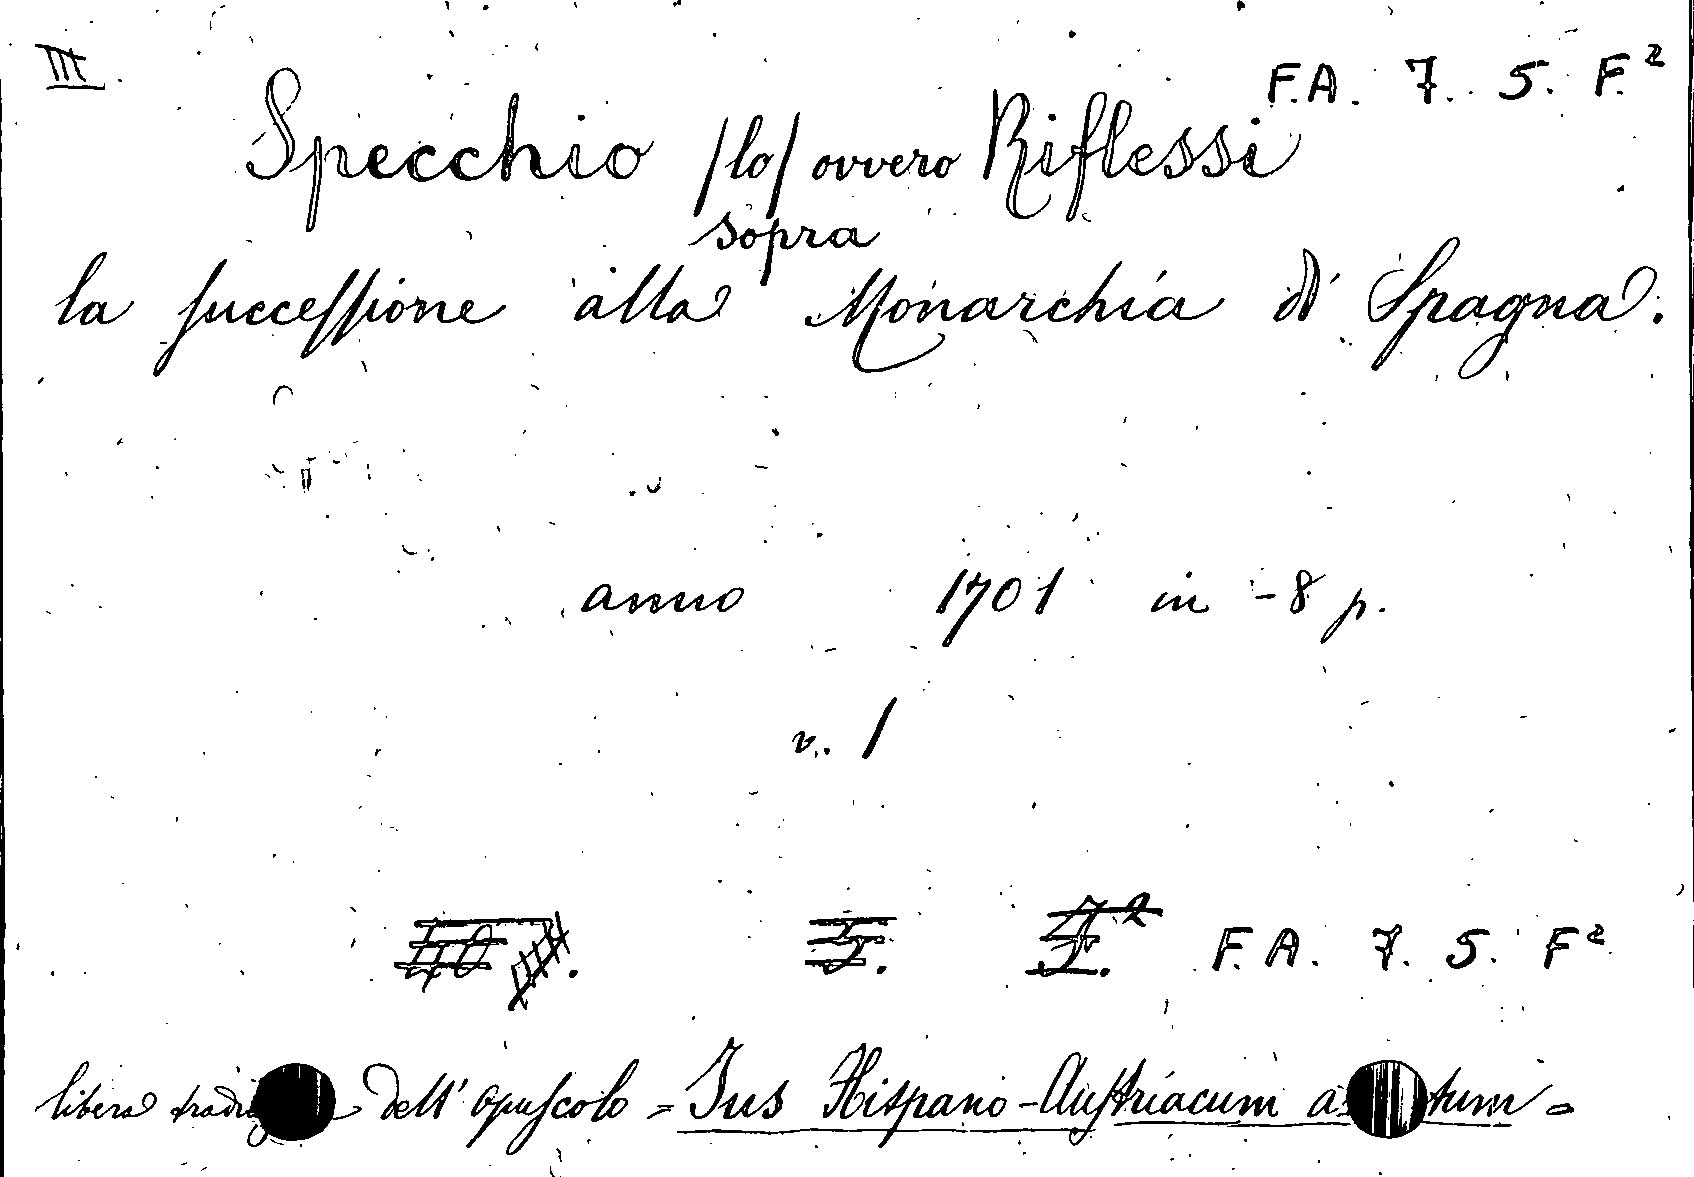 III. F.A. 7. 5. F²
Specchio /lo/ ovvero Riflessi
sopra
la successione alla Monarchia di Spagna.
anno 1701 in -8 p.
v. 1
F. A. 7. 5. F²
libera dell' opuscolo = Jus Hispano-Austriacum =